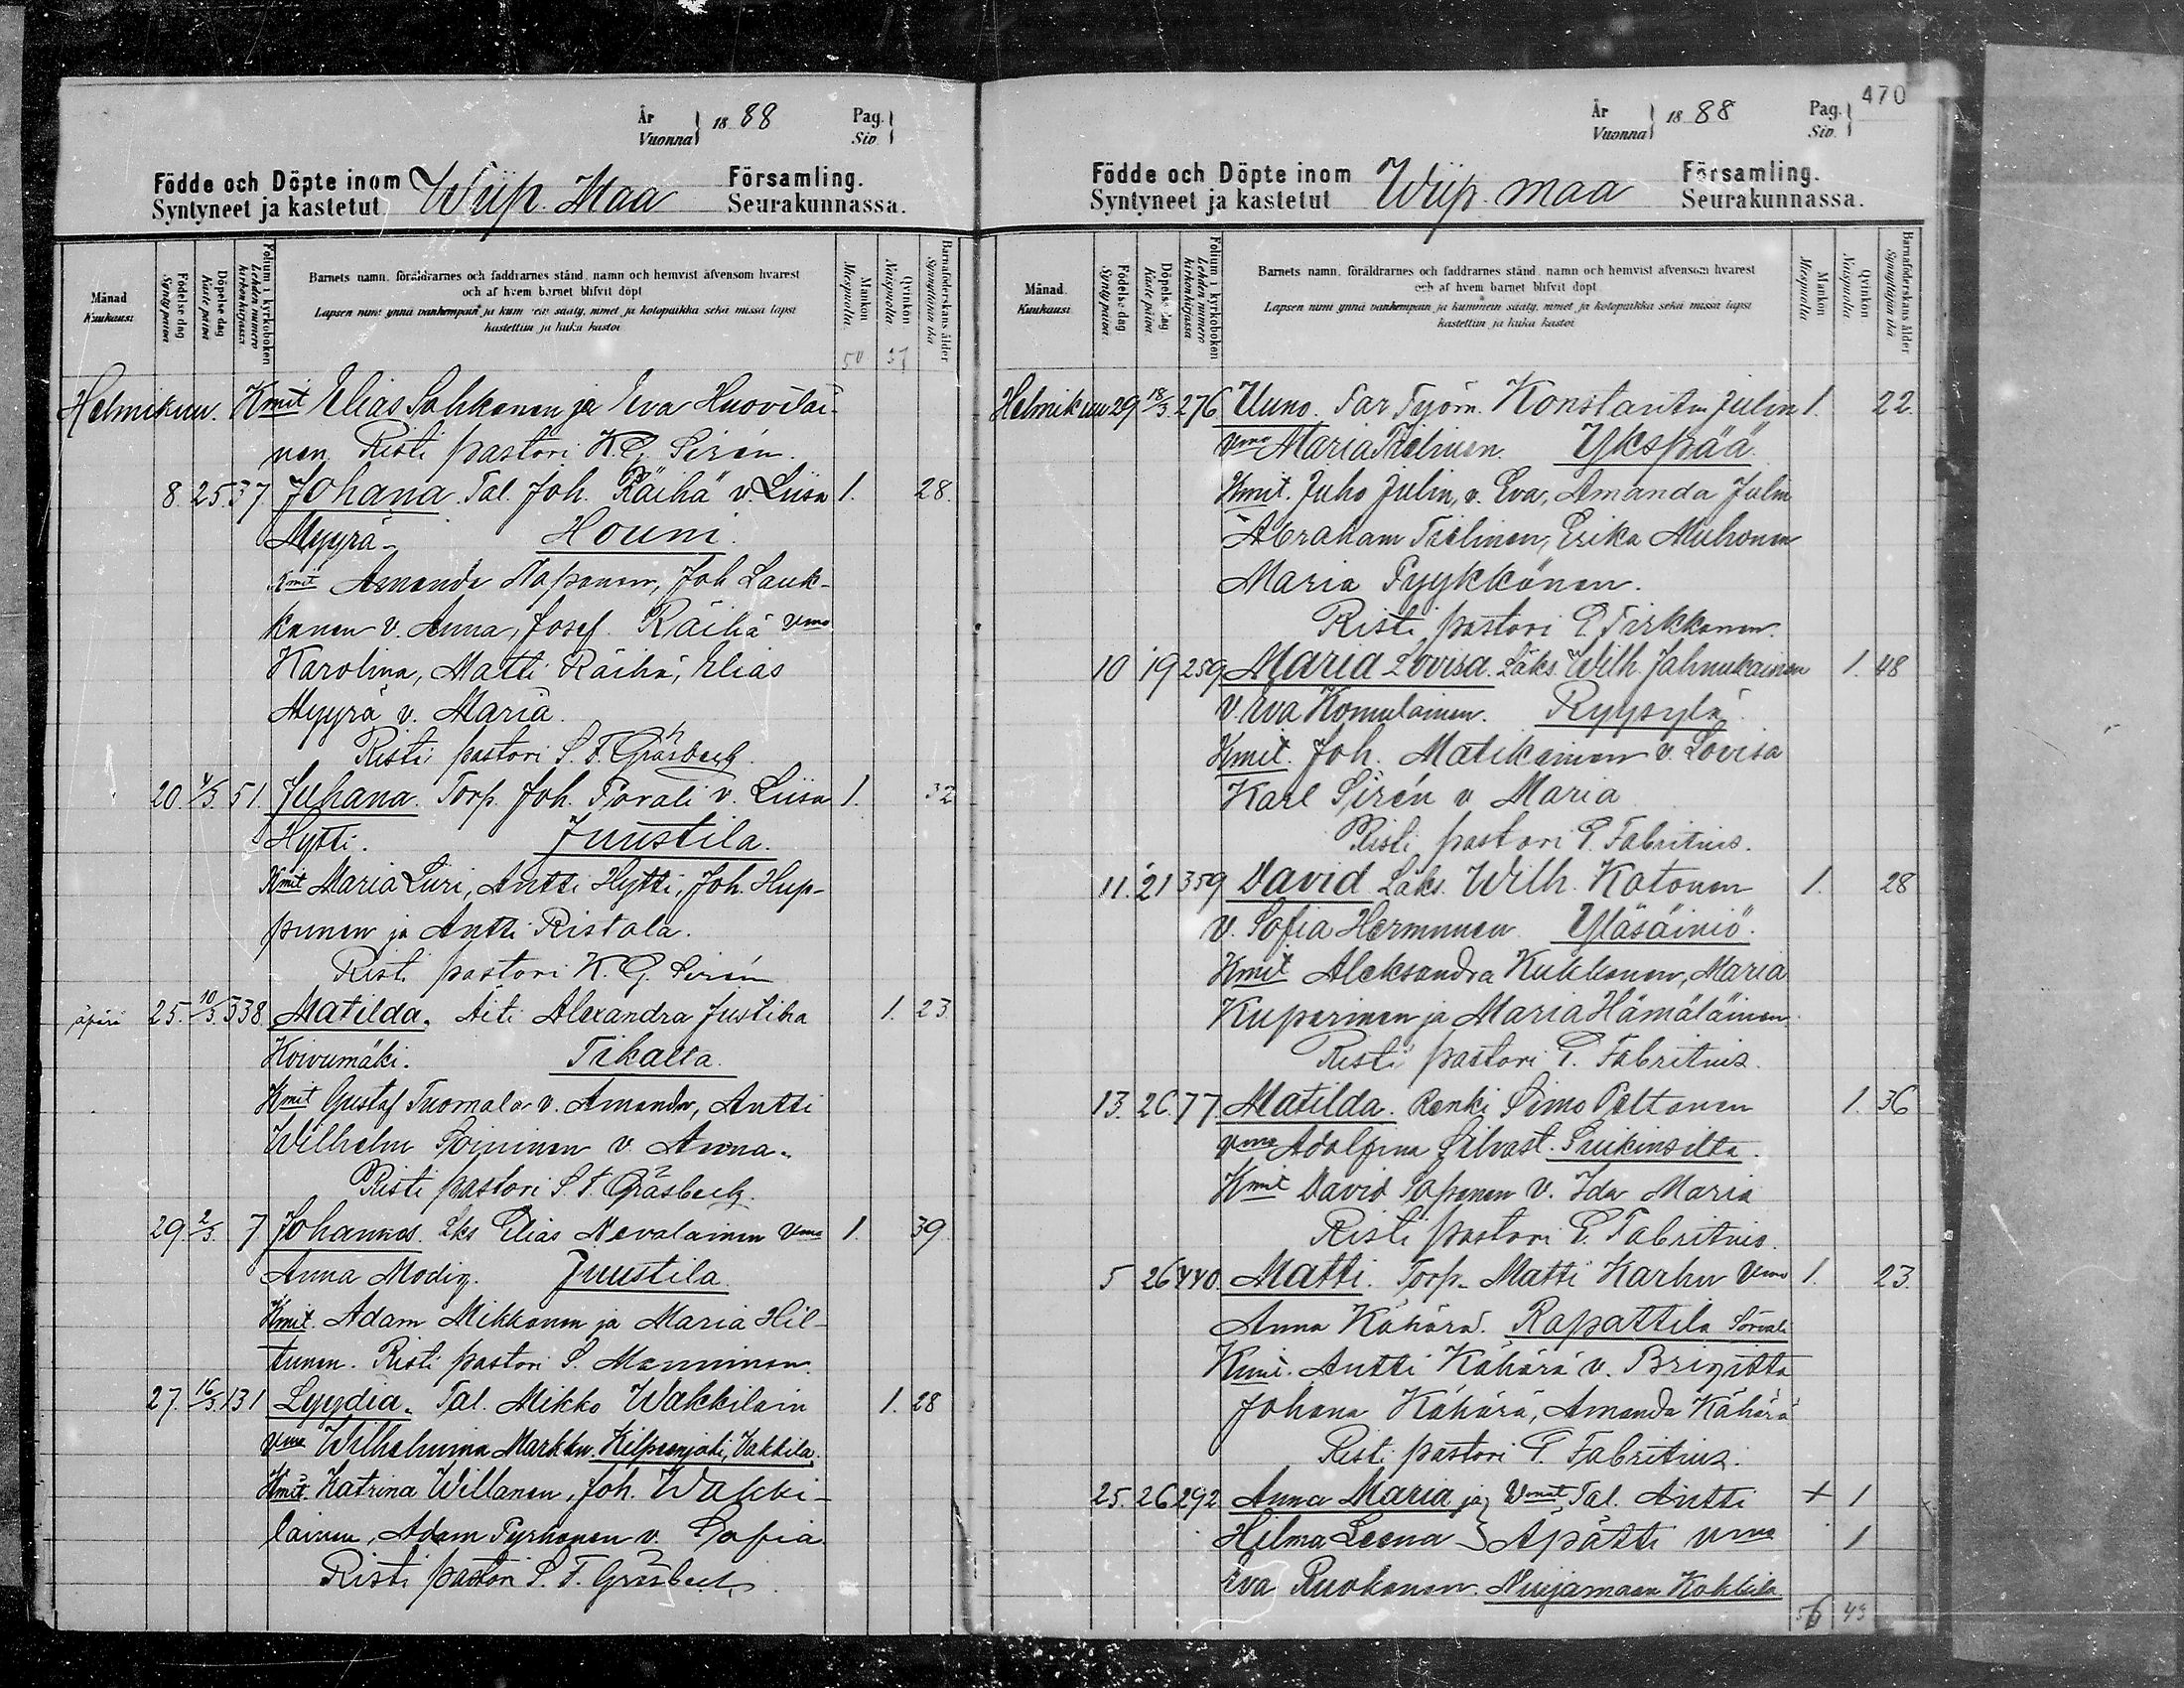 År
Vuonna } 1888 Pag.
Siv. }
Födde och Döpte inom Wiip. Maa Församling.
Syntyneet ja kastetut Seurakunnassa.
Månad
Kuukausi
Födelse dag
Syntypäivä
Döpelse dag
Kaste päivä
Folium i kyrkoboken
Lehden numero kirkonkirjassa
Barnets namn, föräldrarnes och faddrarnes stånd, namn och hemvist äfvensom hvarest
och af hvem barnet blifvit döpt
Lapsen nimi ynnä vanhempain ja kummein sääty, nimet ja kotopaikka sekä missä lapsi
kastettiin ja kuka kastoi
Mankön
Miespuolia
Qvinkön
Naispuolia
Barnaföderskans ålder
Synnyttäjän ikä
50 37
Helmikuu. Kmit Elias Sahkonen ja Eva Huovilai-
nen Risti pastori K. G. Sirén.
8. 25. 37 Johana. Tal. Joh. Räihä v. Liisa 1. 28.
Myyrä. Houni.
Kmit Amanda Taponen, Joh Lauk-
kanen v. Anna, Josef. Räihä vmo
Karolina, Matti Räihä, Elias
Myyrä v. Maria.
Risti pastori S. F. Gräsbeck.
20. 4/3. 51. Juhana. Torp. Joh. Torvali v. Liisa 1. 32
Hytti. Juustila.
Kmit Maria Liiri, Antti Hytti, Joh. Hup-
punen ja Antti Ristola.
Risti pastori K. G. Sirén
äpärä 25. 10/3. 338 Matilda. Äiti Alexandra Justiina 1. 23
Koivumäki. Tikalta.
Kmit Gustaf Tuomala v. Amanda, Antti
Wilhelm Toininen v. Anna.
Risti pastori S. F. Gräsbeck.
29 2/3. 7 Johannes. Lks Elias Nevalainen vmo 1. 39
Anna Modig. Juustila
Kmit. Adam Mikkonen ja Maria Hil-
tunen. Risti pastori S. Manninen.
27. 16/3. 131 Lyydia. Tal. Mikko Wakkilain 1. 28
vmo Wilhelmina Markku. Kilpeenjoki, Vakkila.
Kmit. Katrina Willanen, Joh. Wakki-
lainen, Adam Pyrhonen v. Sofia
Risti pastori S. F. Gräsbeck
470
År
Vuonna } 1888 Pag.
Siv. }
Födde och Döpte inom Wiip. maa Församling.
Syntyneet ja kastetut Seurakunnassa.
Månad
Kuukausi
Födelse dag
Syntypäivä
Döpelse dag
Kaste päivä
Folium i kyrkoboken
Lehden numero kirkonkirjassa
Barnets namn, föräldrarnes och faddrarnes stånd, namn och hemvist äfvensom hvarest
och af hvem barnet blifvit döpt
Lapsen nimi ynnä vanhempain ja kummein sääty, nimet ja kotopaikka sekä missä lapsi
kastettiin ja kuka kastoi
Mankön
Miespuolia
Qvinkön
Naispuolia
Barnaföderskans ålder
Synnyttäjän ikä
Helmikuu 29 18/3. 276 Uuno. Far Työm. Konstantin Julin 1. 22.
vmo Maria Tiilinen. Ykspää.
Kmit. Juho Julin, v. Eva, Amanda Julin
Abraham Tiilinen, Erika Muhonen
Maria Pyykkönen.
Risti pastori E. Tirkkonen.
10 19 259 Maria Lovisa. Läks. Wilh. Jahnukainen 1. 48
v. Eva Komulainen. Ryypylä
Kmit. Joh. Matikainen v. Lovisa
Karl Sirén v Maria
Risti pastori P. Fabritius.
11. 21 359 David Läks. Wilh. Kotonen 1. 28
v. Sofia Hermunen Yläsäiniö.
Kmit Aleksandra Kukkonen, Maria
Kuparinen ja Maria Hämäläinen
Risti pastori P. Fabritius.
13. 26. 77 Matilda. Renki Simo Peltonen 1. 36
vmo Adolfina Silvast. Suikinsilta.
Kmit David Saponen v. Ida Maria
Risti pastori P. Fabritius.
5 26 440. Matti. Torp. Matti Karhu vmo 1. 23.
Anna Kähärä. Rapattila Sorvali
Kmit. Antti Kähärä v. Brigitta
Johana Kähärä, Amanda Kähärä
Risti pastori P. Fabritius.
25. 26 292 Anna Maria ja } Vmit Tal. Antti + 1
Hilma Leena } Äpätti vmo 1
Eva Ruokonen. Nuijamaan Kokkila
56 43